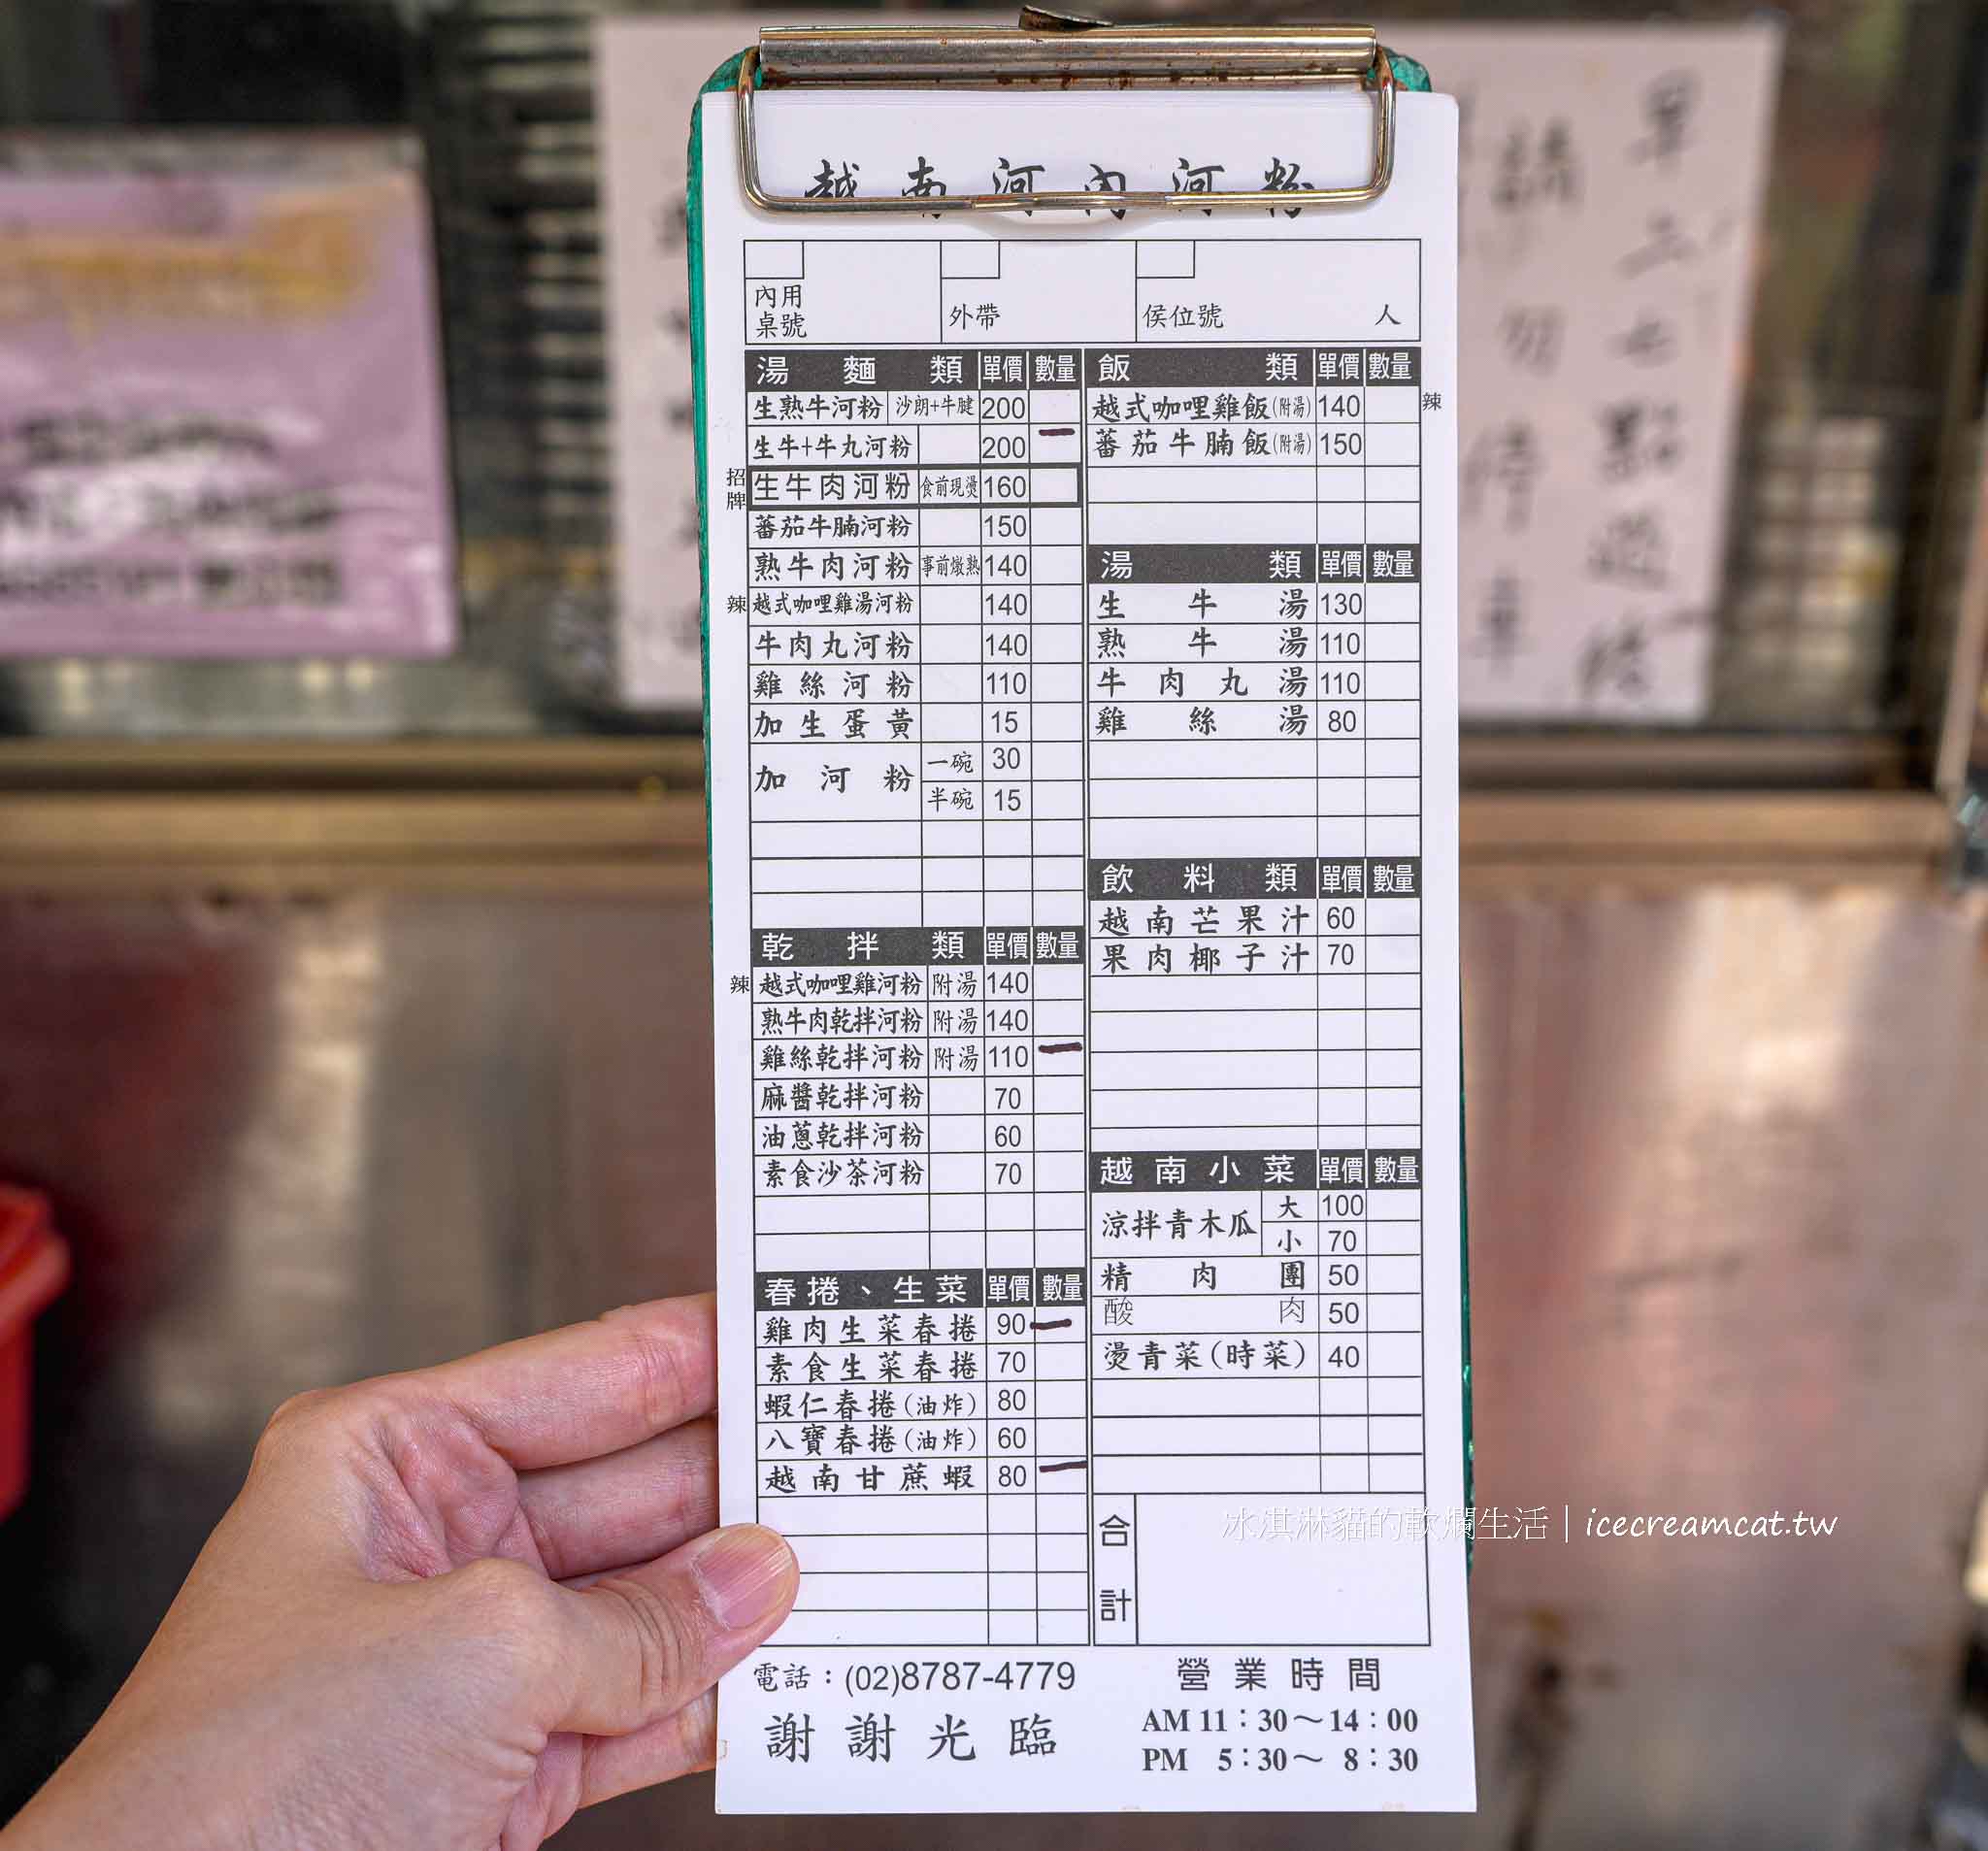 越南河內河粉
內用
桌號
外帶
侯位號 人
湯麵類 單價 數量
生熟牛河粉 沙朗+牛腱 200
生牛+牛丸河粉 200
招牌 生牛肉河粉 食前現燙 160
蕃茄牛腩河粉 150
熟牛肉河粉 事前燉熟 140
辣 越式咖哩雞湯河粉 140
牛肉丸河粉 140
雞絲河粉 110
加生蛋黃 15
加河粉 一碗 30
半碗 15
乾拌類 單價 數量
辣 越式咖哩雞河粉 附湯 140
熟牛肉乾拌河粉 附湯 140
雞絲乾拌河粉 附湯 110
麻醬乾拌河粉 70
油蔥乾拌河粉 60
素食沙茶河粉 70
春捲、生菜 單價 數量
雞肉生菜春捲 90
素食生菜春捲 70
蝦仁春捲(油炸) 80
八寶春捲(油炸) 60
越南甘蔗蝦 80
飯類 單價 數量
越式咖哩雞飯(附湯) 140 辣
蕃茄牛腩飯(附湯) 150
湯類 單價 數量
生牛湯 130
熟牛湯 110
牛肉丸湯 110
雞絲湯 80
飲料類 單價 數量
越南芒果汁 60
果肉椰子汁 70
越南小菜 單價 數量
涼拌青木瓜 大 100
小 70
精肉團 50
酸肉 50
燙青菜(時菜) 40
合計
電話：(02)8787-4779
謝謝光臨
營業時間
AM 11：30～14：00
PM 5：30～ 8：30
冰淇淋貓的軟爛生活 | icecreamcat.tw
請勿停車